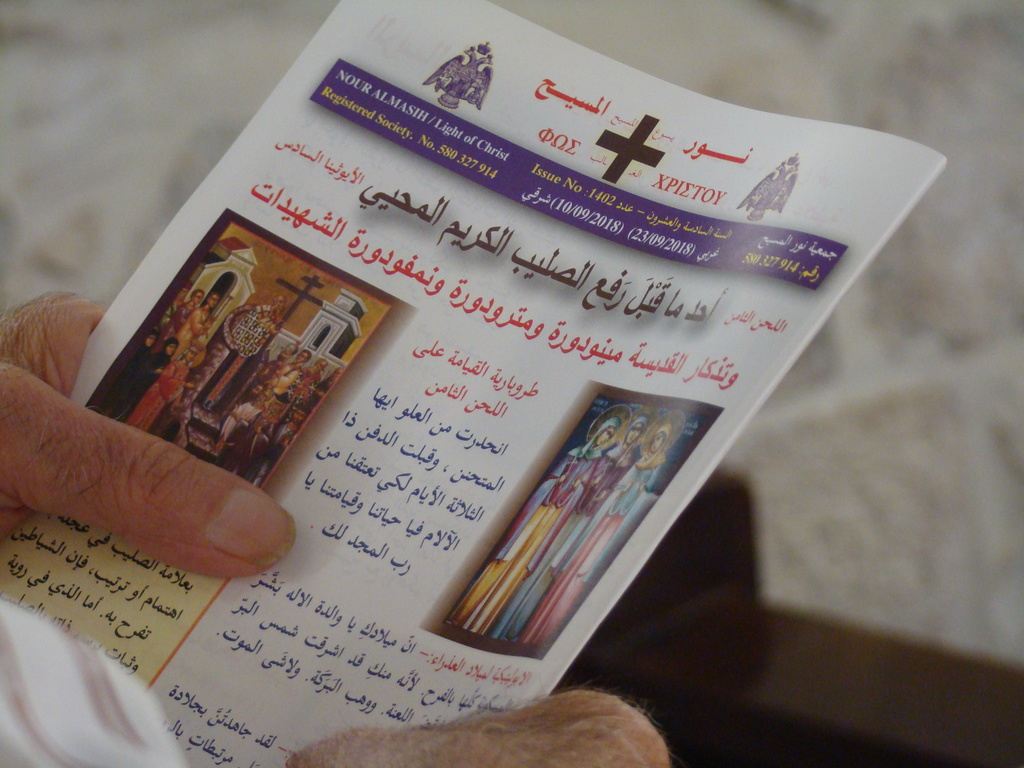 نور المسيح
ΦΩΣ ΧΡΙΣΤΟΥ
NOUR ALMASIH / Light of Christ
Registered Society. No. 580 327 914
Issue No :1402 السنة السادسة والعشرون – عدد
غربي (23/09/2018) (10/09/2018) شرقي
جمعية نور المسيح
رقم: 580 327 914
اللحن الثامن أحد ما قَبْلَ رَفع الصليب الكريم المحيي الأيوثينا السادس
وتذكار القديسة مينودورة ومترودورة ونمفودورة الشهيدات
طروبارية القيامة على
اللحن الثامن
انحدرت من العلو ايها
المتحنن ، وقبلت الدفن ذا
الثلاثة الأيام لكي تعتقنا من
الآلام فيا حياتنا وقيامتنا يا
رب المجد لك .
بعلامة الصليب في عجلة
اهتمام او ترتيب، فإن الشياطين
تفرح به. أما الذي في روية
وثبات
لميلاد العذراء:– انّ ميلادكِ يا والدة الاله بَشَّرَ
كلّها بالفرح لأنّه منك قد اشرقت شمس البرّ
اللعنة. ووهب البَرَكَة. ولاشى الموت.
– لقد جاهدتُنَّ بجلادة
مرتبطاتٍ